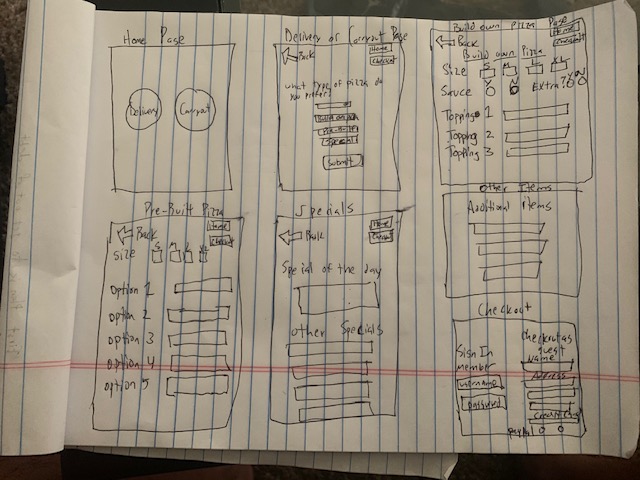 Home Page
Delivery
Carryout
Delivery or Carryout Page
Back
Home
Checkout
what type of pizza do
you prefer?
Build own
Pre-Built
Special
Submit
Build own Pizza Page
Back
Home
Checkout
Build own Pizza
Size S M L XL
Sauce Y N Extra? Y N
Topping 1
Topping 2
Topping 3
Pre-Built Pizza
Back
Home
Checkout
Size S M L XL
Option 1
Option 2
Option 3
Option 4
Option 5
Specials
Back
Home
Checkout
Special of the day
Other Specials
Other Items
Additional items
Checkout
Sign In
Member
username
password
Checkout as
guest
Name
Address